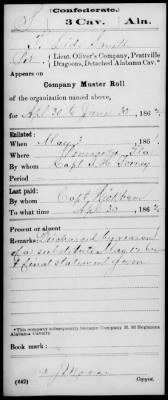 (Confederate.)
S 3 Cav. Ala.
T. Lide Smith
Pvt., Lieut. Oliver's Company, Prattville Dragoons, Detached Alabama Cav.*
Appears on
Company Muster Roll
of the organization named above,
for Apl 30 to June 30, 186
Enlisted:
When May 3, 186
Where Pensacola Fla
By whom Capt
Period
Last paid:
By whom Capt
To what time Apl 30, 186
Present or absent
Remarks: Discharged by reason
of a substitute May
& final statement given
*This company subsequently became Company H, 3d Regiment Alabama Cavalry.
Book mark:
(642) Copyist.